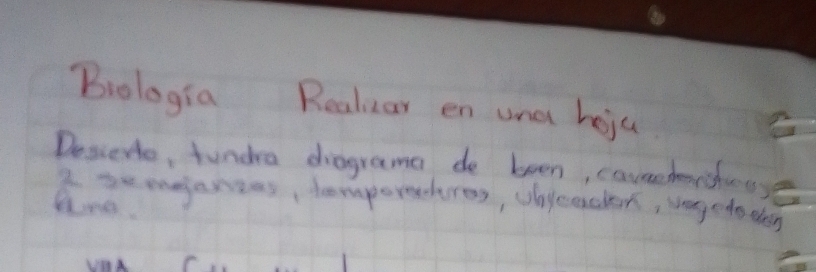 Biología Realizar en una hoja.
Desierto, tundra diagrama de been, características
2 semejanzas, temperaturas, ubicación, vegetación